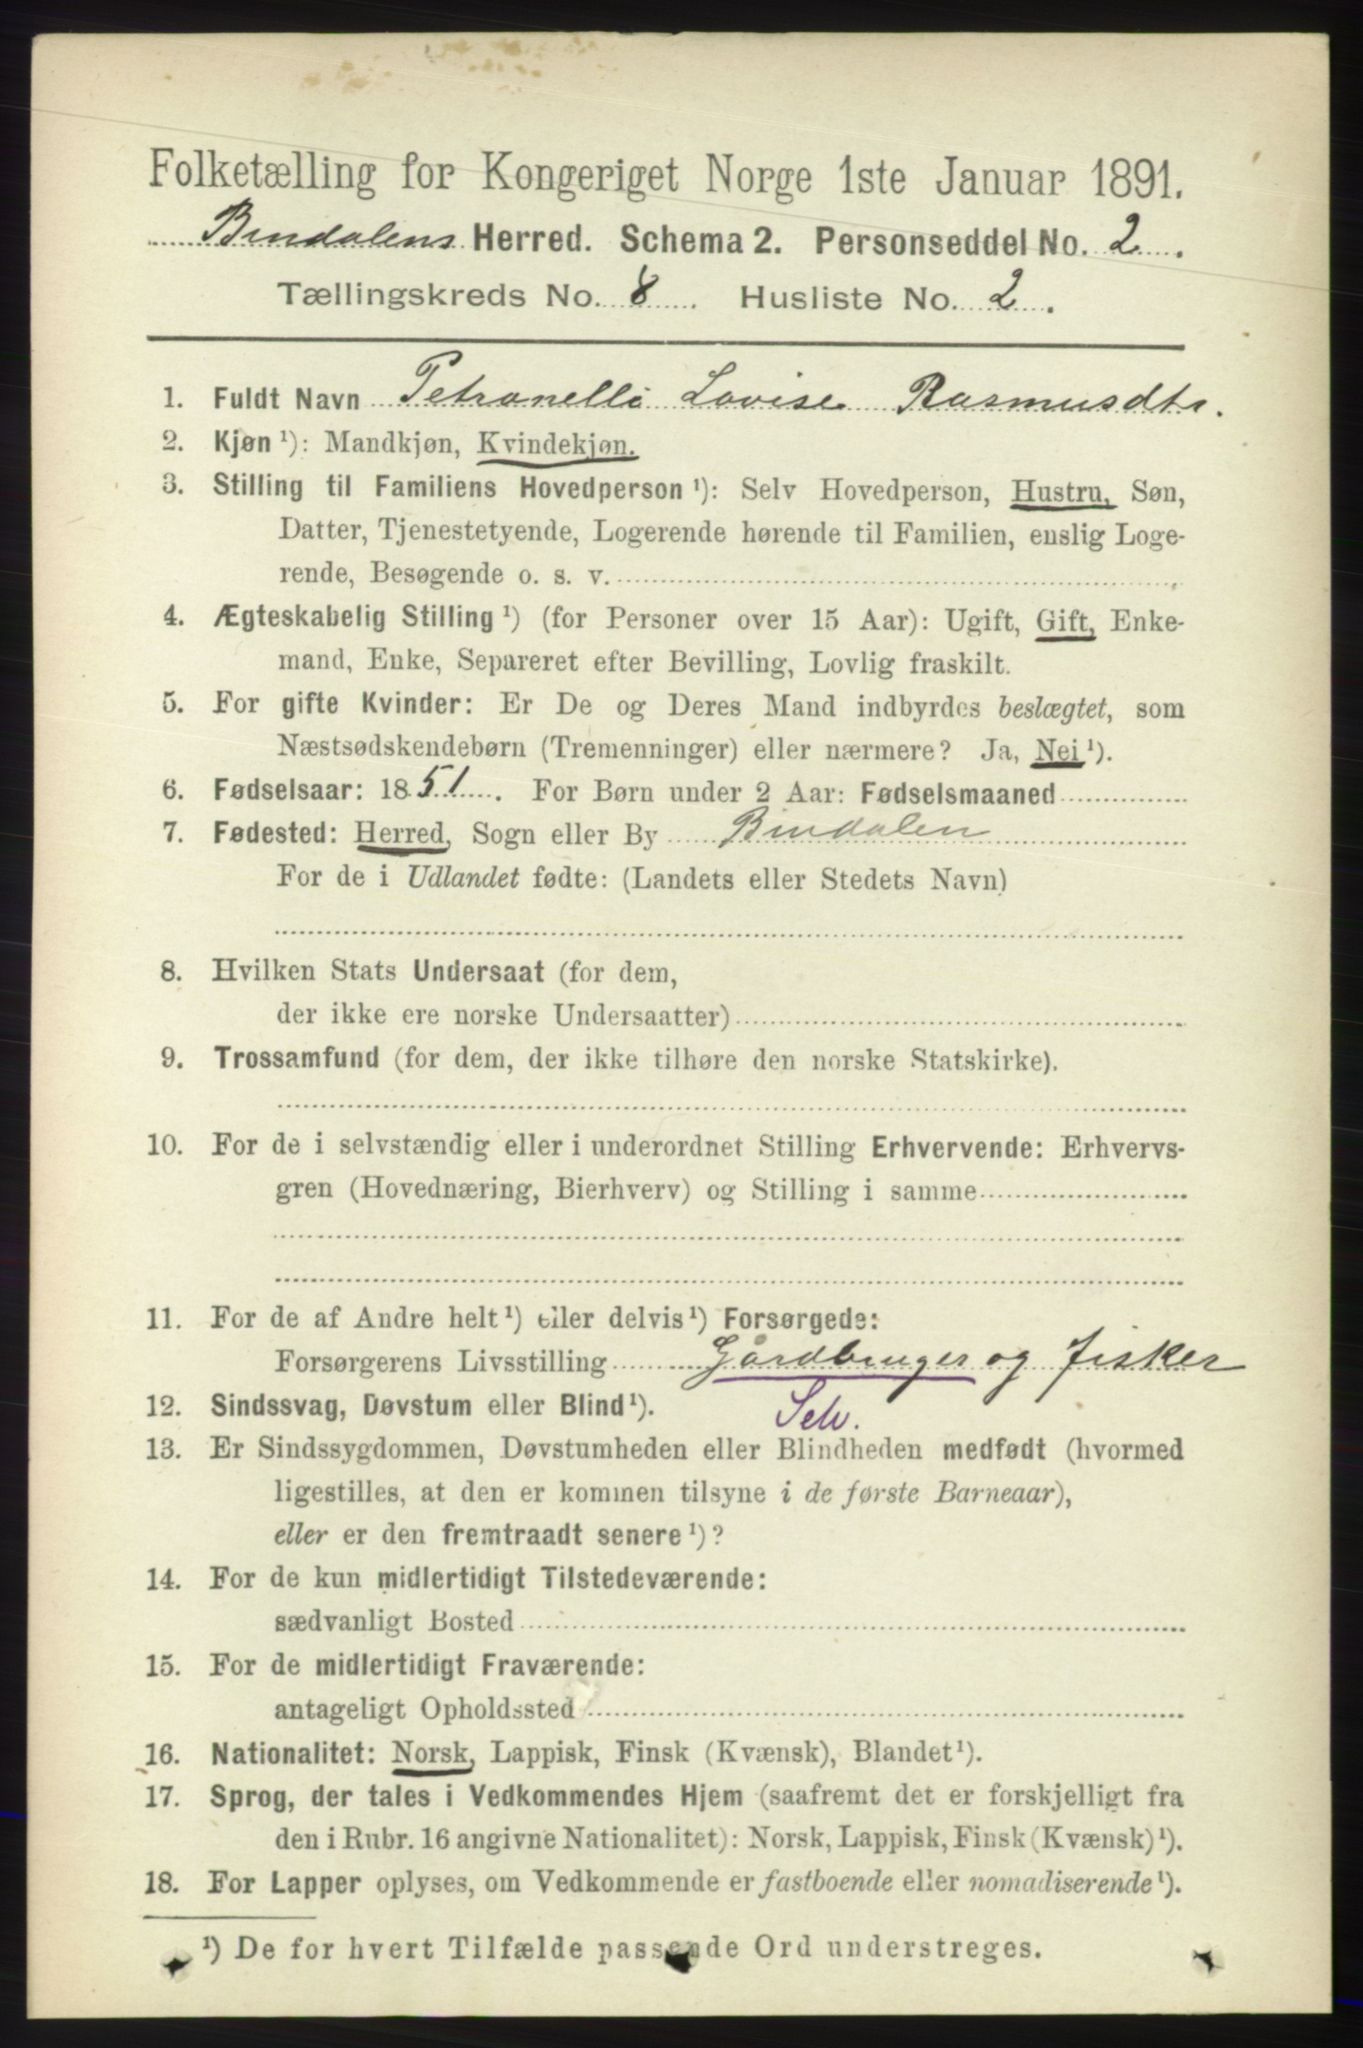 Folketælling for Kongeriget Norge 1ste Januar 1891.
Bindalens Herred. Schema 2. Personseddel No. 2.
Tællingskreds No. 8. Husliste No. 2.
1. Fuldt Navn Petranelle Lovise Rasmusdtr.
2. Kjøn ¹): Mandkjøn, Kvindekjøn.
3. Stilling til Familiens Hovedperson ¹): Selv Hovedperson, Hustru, Søn,
Datter, Tjenestetyende, Logerende hørende til Familien, enslig Loge-
rende, Besøgende o. s. v.
4. Ægteskabelig Stilling ¹) (for Personer over 15 Aar): Ugift, Gift, Enke-
mand, Enke, Separeret efter Bevilling, Lovlig fraskilt.
5. For gifte Kvinder: Er De og Deres Mand indbyrdes beslægtet, som
Næstsødskendebørn (Tremenninger) eller nærmere? Ja, Nei ¹).
6. Fødselsaar: 1851. For Børn under 2 Aar: Fødselsmaaned
7. Fødested: Herred, Sogn eller By Bindalen
For de i Udlandet fødte: (Landets eller Stedets Navn)
8. Hvilken Stats Undersaat (for dem,
der ikke ere norske Undersaatter)
9. Trossamfund (for dem, der ikke tilhøre den norske Statskirke).
10. For de i selvstændig eller i underordnet Stilling Erhvervende: Erhvervs-
gren (Hovednæring, Bierhverv) og Stilling i samme
11. For de af Andre helt ¹) eller delvis ¹) Forsørgede:
Forsørgerens Livsstilling Gårdbruger og fisker
12. Sindssvag, Døvstum eller Blind ¹). Selv.
13. Er Sindssygdommen, Døvstumheden eller Blindheden medfødt (hvormed
ligestilles, at den er kommen tilsyne i de første Barneaar),
eller er den fremtraadt senere ¹)?
14. For de kun midlertidigt Tilstedeværende:
sædvanligt Bosted
15. For de midlertidigt Fraværende:
antageligt Opholdssted
16. Nationalitet: Norsk, Lappisk, Finsk (Kvænsk), Blandet ¹).
17. Sprog, der tales i Vedkommendes Hjem (saafremt det er forskjelligt fra
den i Rubr. 16 angivne Nationalitet): Norsk, Lappisk, Finsk (Kvænsk) ¹).
18. For Lapper oplyses, om Vedkommende er fastboende eller nomadiserende ¹).
¹) De for hvert Tilfælde passende Ord understreges.